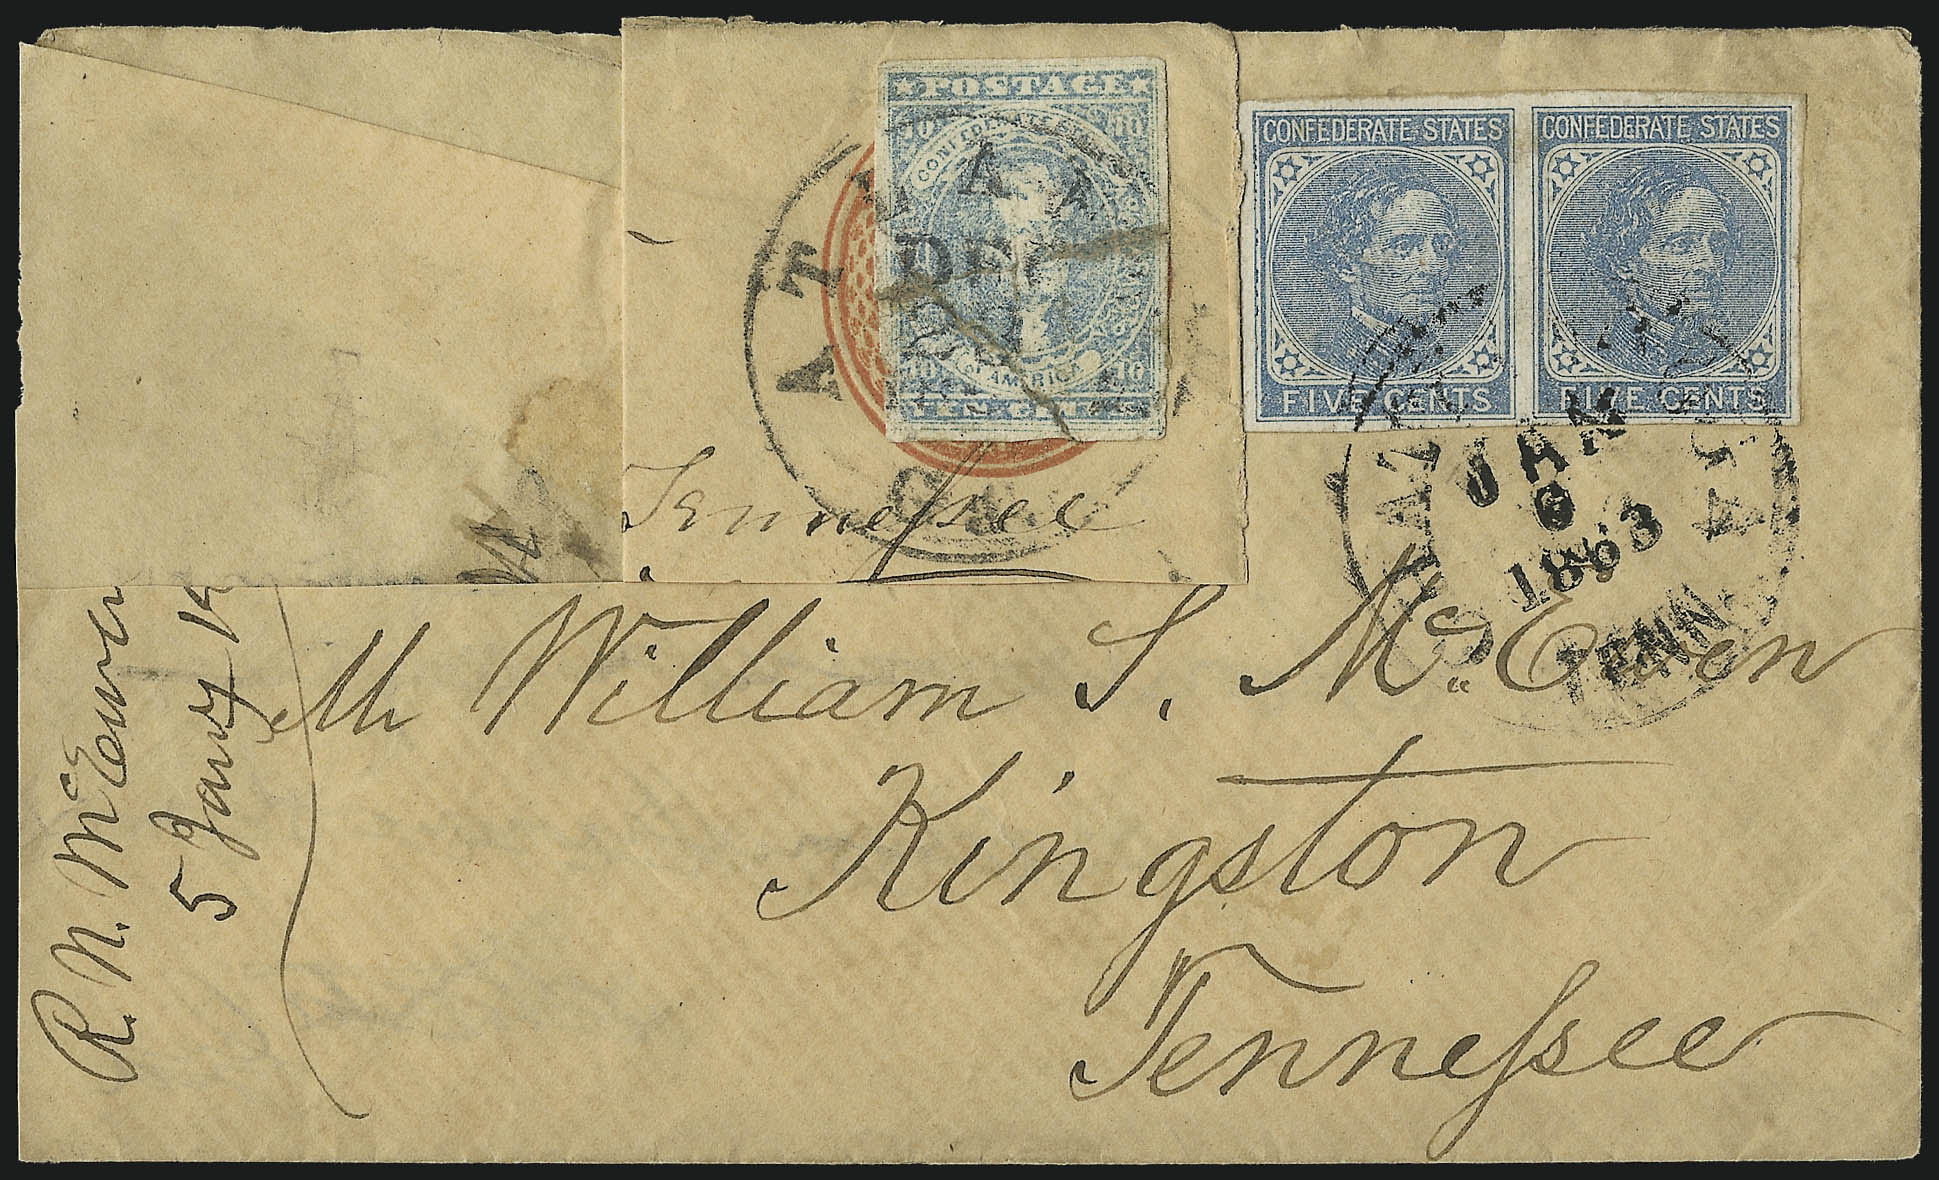 POSTAGE
10 10
CONFEDERATE
OF AMERICA
10 10
TEN CENTS
ATLANTA
DEC
GA
Tennessee
CONFEDERATE STATES
FIVE CENTS
CONFEDERATE STATES
FIVE CENTS
CHATTANOOGA
JAN
6
1863
TENN.
Mr William S. McEwen
Kingston
Tennessee
R. N. McEwen
5 Jany